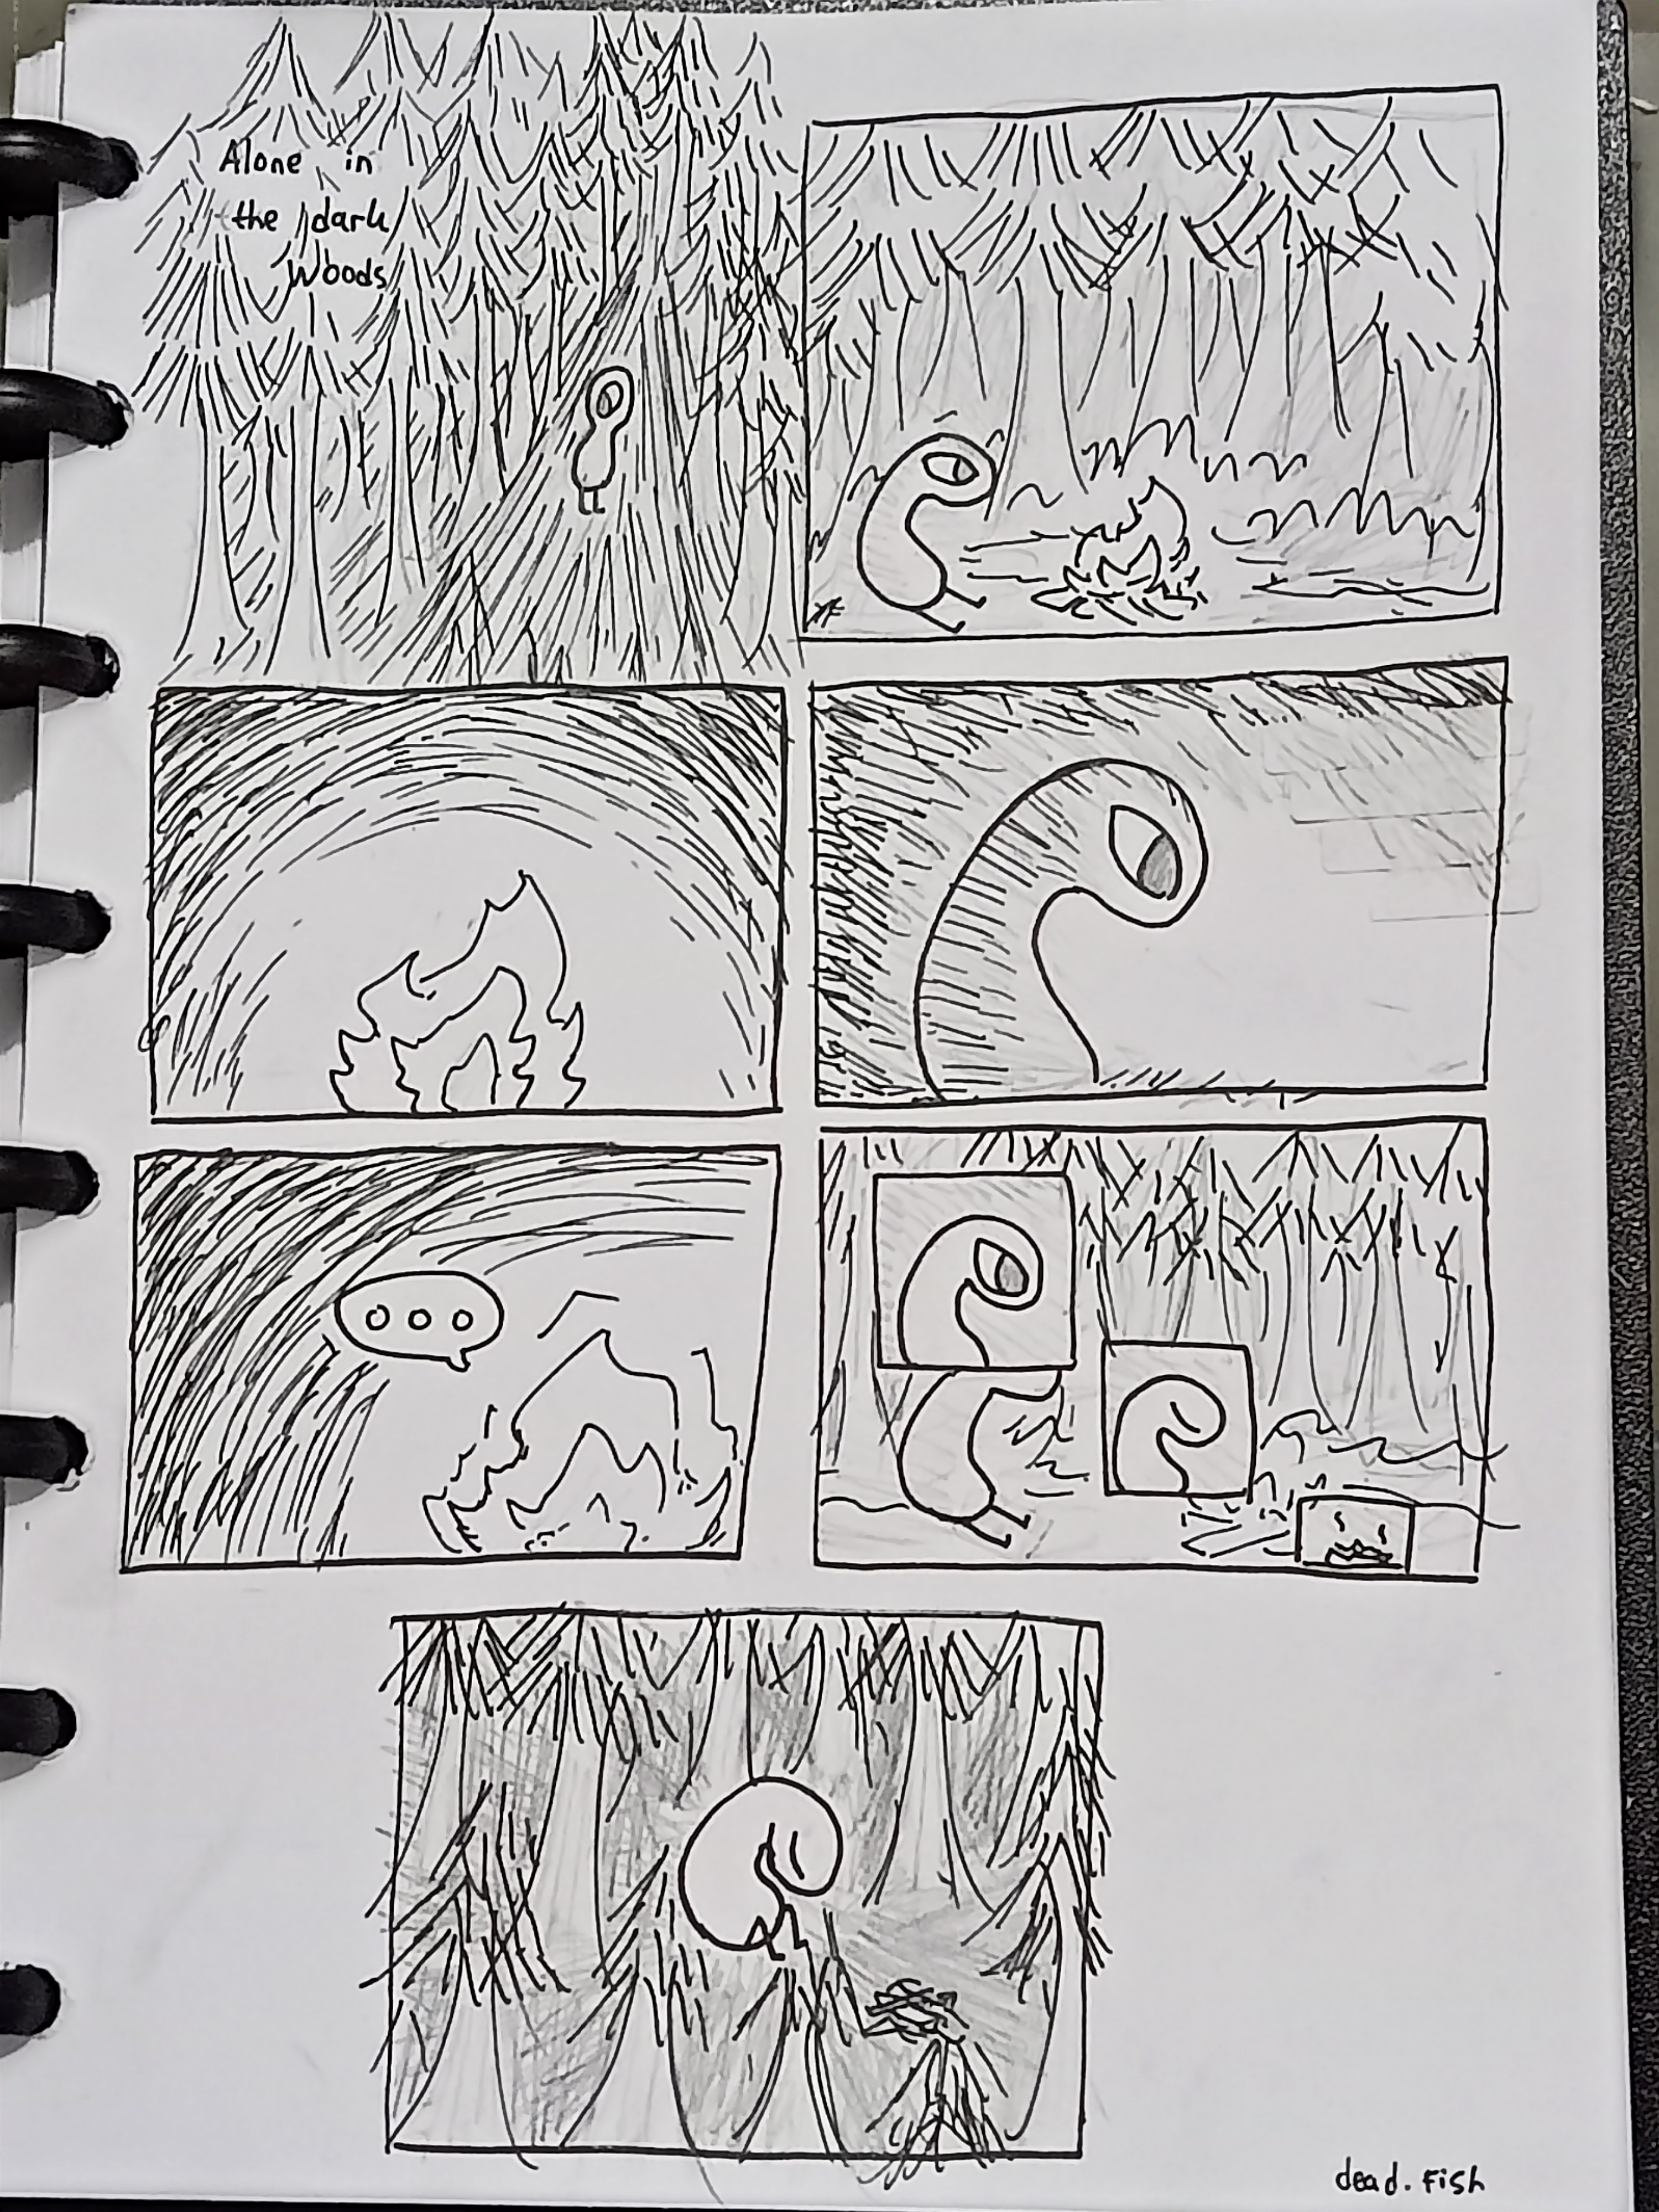 Alone in
the dark
Woods
dead.fish